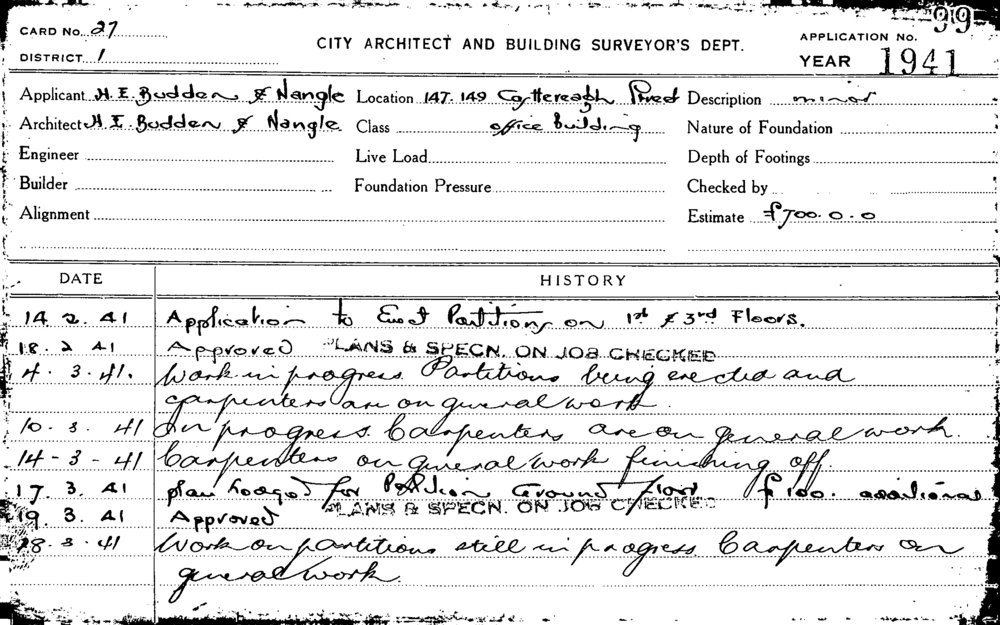 CARD No. 27
DISTRICT 1
CITY ARCHITECT AND BUILDING SURVEYOR'S DEPT.
APPLICATION No. 99
YEAR 1941
Applicant H. E. Budden & Nangle Location 147. 149 Castlereagh Street Description minor
Architect H E Budden & Nangle. Class office building Nature of Foundation
Engineer Live Load Depth of Footings
Builder Foundation Pressure Checked by
Alignment Estimate £700. 0. 0
DATE HISTORY
14. 2. 41 Application to Erect Partitions on 1st & 3rd Floors.
18. 2 41 Approved PLANS & SPECN. ON JOB CHECKED
4. 3. 41. Work in progress. Partitions being erected and
carpenters are on general work.
10. 3. 41 In progress. Carpenters are on general work.
14-3-41 Carpenters on general work finishing off.
17. 3. 41 plan lodged for Partition Ground Floor £100. additional
19. 3. 41 Approved PLANS & SPECN. ON JOB CHECKED
28. 3. 41 Work on partitions still in progress. Carpenters on
general work.